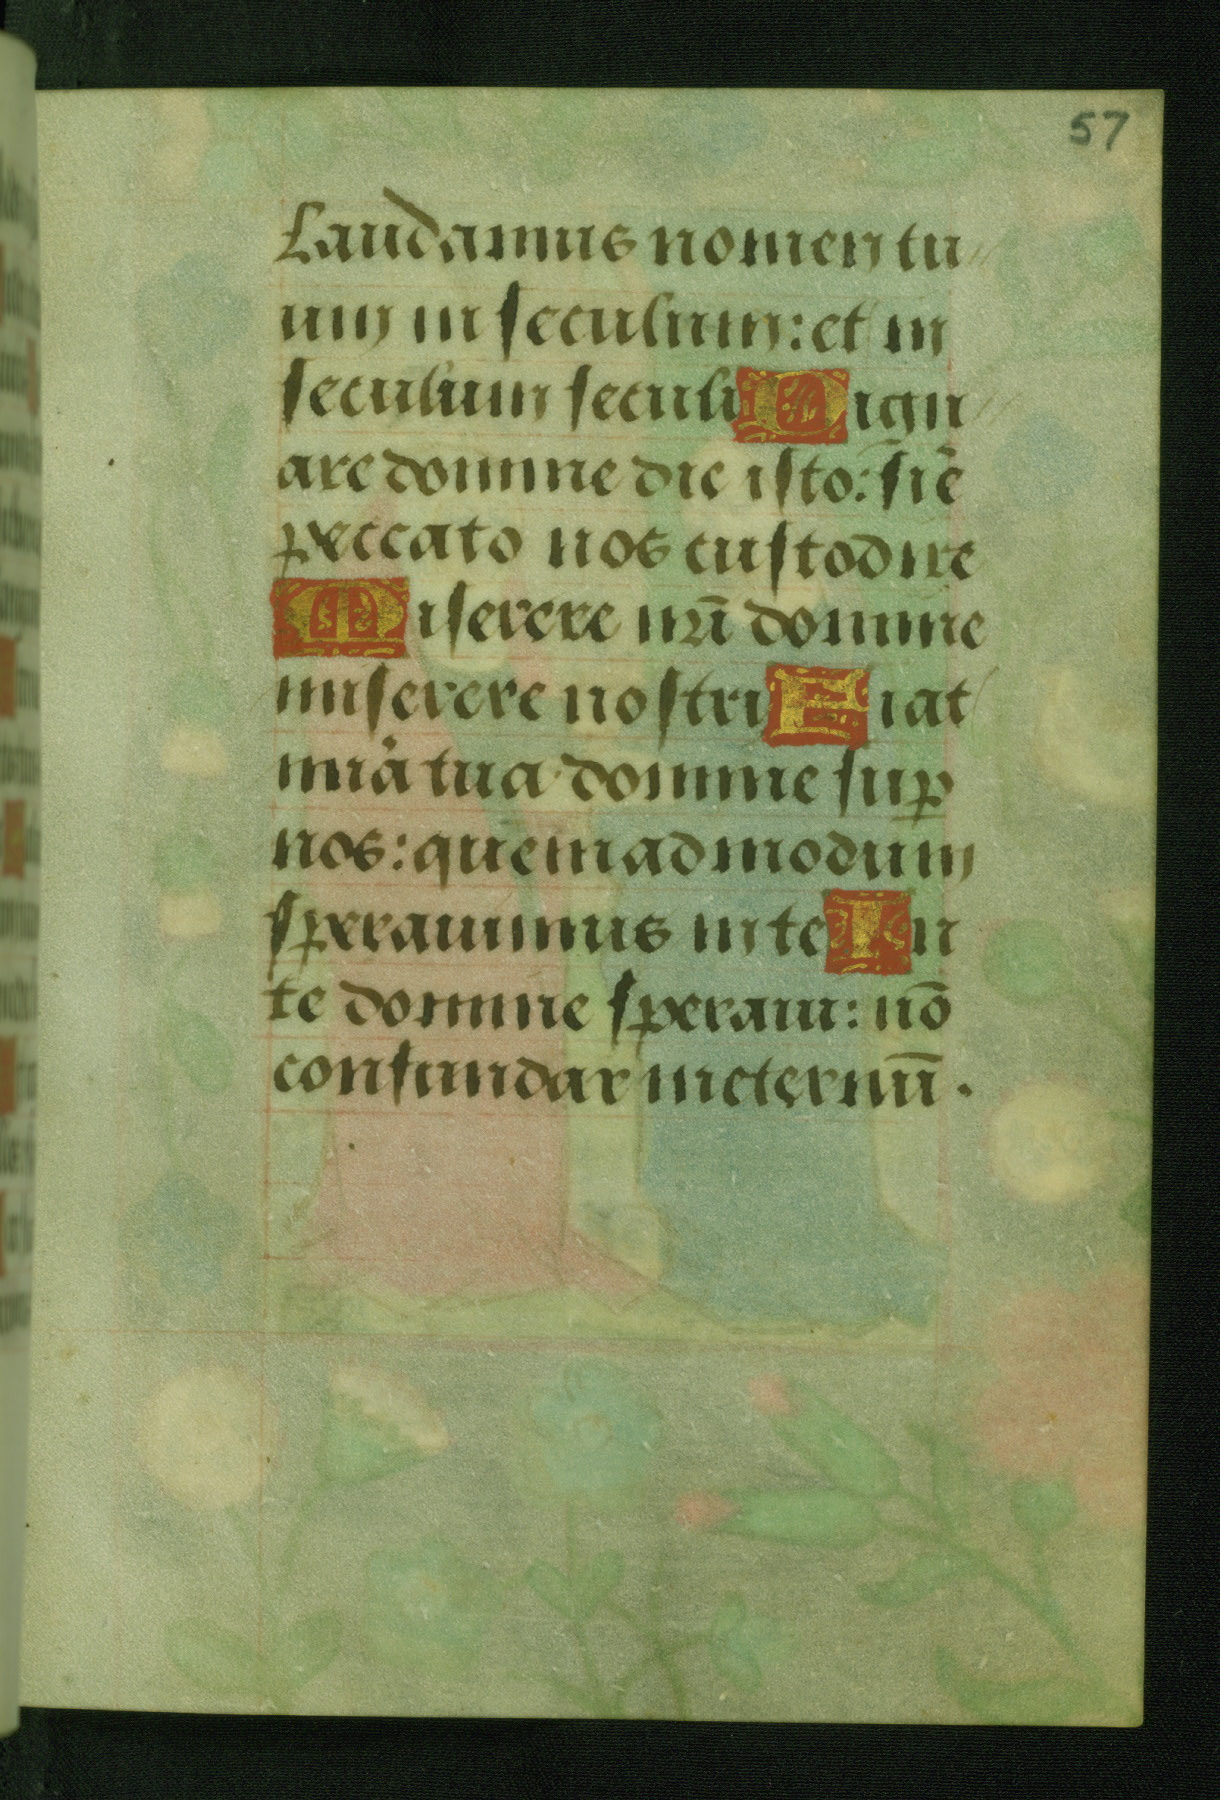 57
Laudamus nomen tu
um in seculum: et in
seculum seculi Dign
are domine die isto: siē
peccato nos custodire
Miserere nr̄i domine
miserere nostri Fiat
mīa tua domine sup
nos: quemadmodum
speravimus in te In
te domine speravi: nō
confundar in eternū.